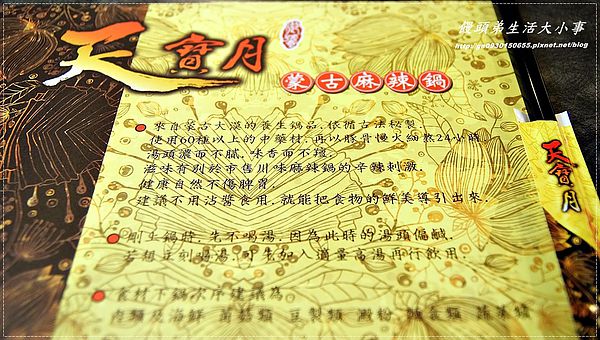 饅頭弟生活大小事
http://qs0930150655.pixnet.net/blog
天寶月
蒙古麻辣鍋
來自蒙古大漠的養生鍋品,依循古法秘製
使用60種以上的中藥材,再以豚骨慢火細熬24小時,
湯頭濃而不膩,味香而不搶,
滋味有別於市售川味麻辣鍋的辛辣刺激,
健康自然不傷脾胃,
建議不用沾醬食用,就能把食物的鮮美導引出來,
剛上鍋時,先不喝湯,因為此時的湯頭偏鹹,
若想立刻喝湯,可多加入適量高湯再行飲用,
食材下鍋次序建議為
肉類及海鮮 菌菇類 豆製類 澱粉 麵食類 蔬菜類
天寶月